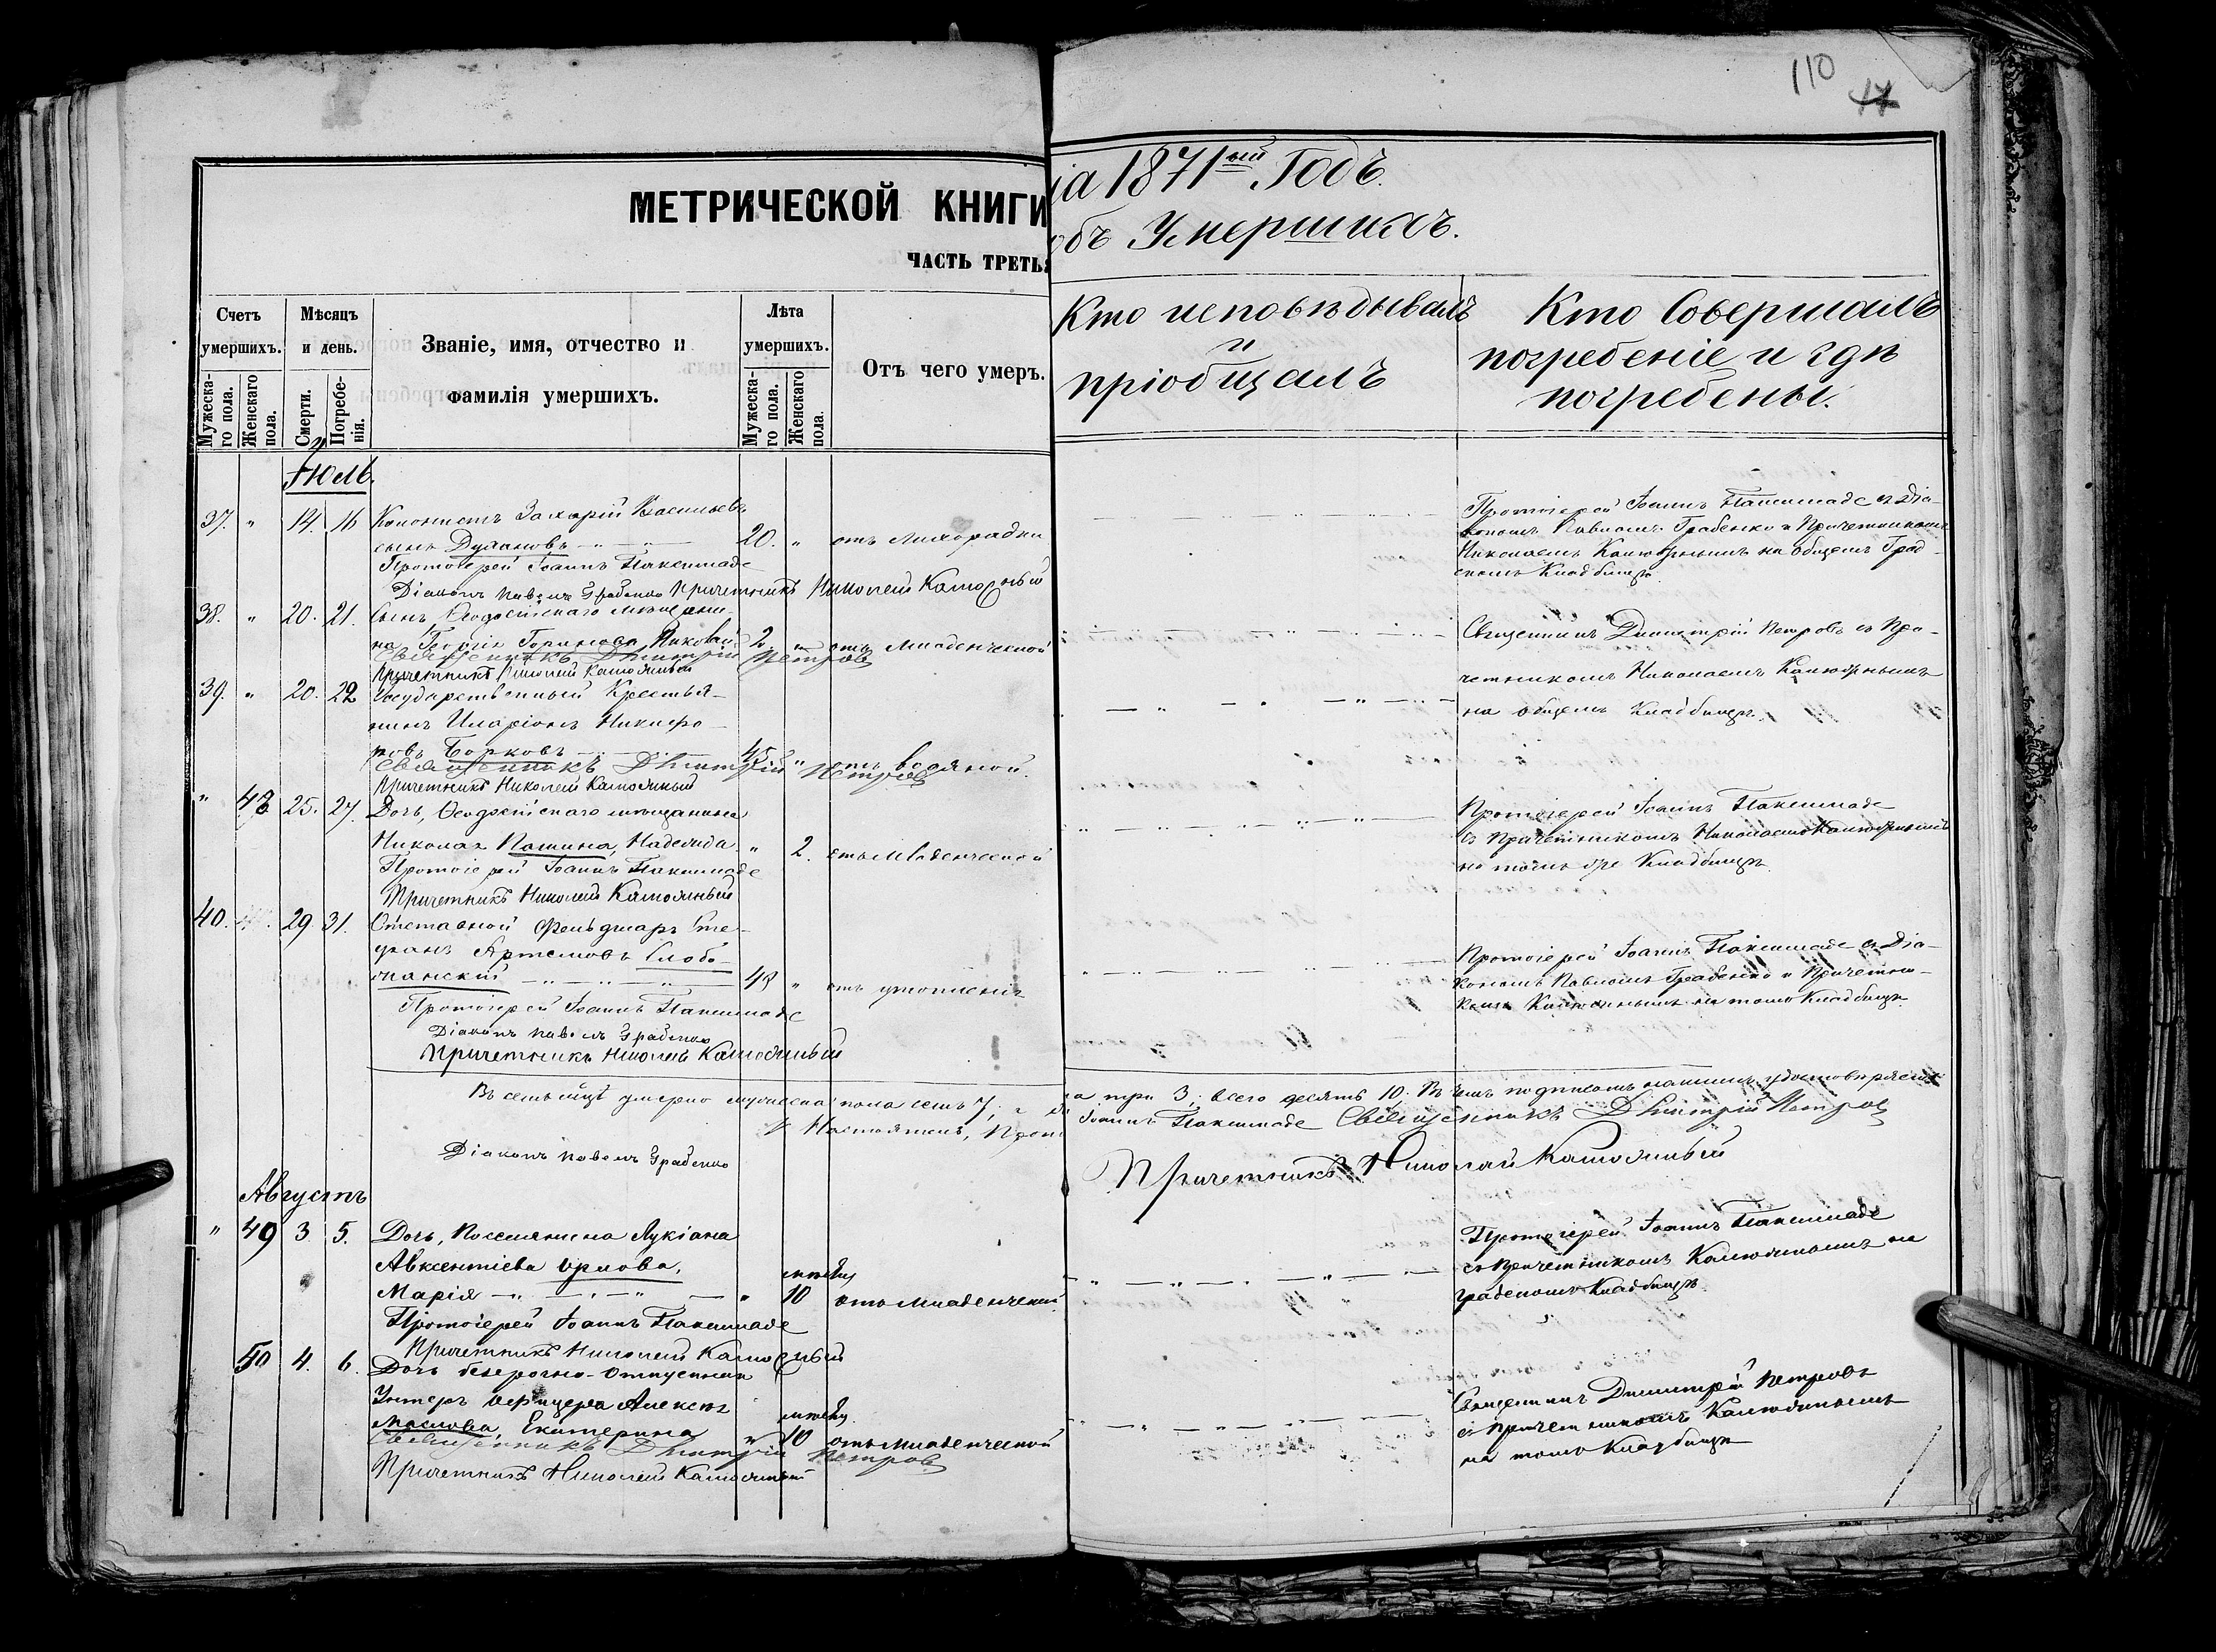 110
44
МЕТРИЧЕСКОЙ КНИГИ
ЧАСТЬ ТРЕТЬЯ
Счетъ умершихъ.
Мужеска-го пола.
Женскаго пола.
Мѣсяцъ и день.
Смерти.
Погребе-нія.
Званіе, имя, отчество и
фамилія умершихъ.
Лѣта умершихъ.
Мужеска-го пола.
Женскаго пола.
Отъ чего умеръ.
Іюль.
37. " 14. 16 Колонистъ Захарій Васильевъ
сынъ Дулановъ 20. " отъ Лихорадки
Протоіерей Іоаннъ Паксимаде
Діаконъ Павелъ Грабенко Причетникъ Николай
38. " 20. 21. Сынъ, Ѳеодосійскаго мѣщани-
на Георгія 2. " отъ Младенческой
Священникъ Дмитрій Петровъ
Причетникъ Николай
39. " 20. 22 Государственный Крестья-
нинъ Иларіонъ Никифо-
ровъ Борковъ 45. " отъ водяной.
Священникъ Дмитрій Петровъ
Причетникъ Николай
" 48 25. 27. Дочь, Ѳеодосійскаго мѣщанина
Николая Пашина, Надежда " 2. отъ Младенческой
Протоіерей Іоаннъ Паксимаде
Причетникъ Николай
40. 29. 31. Отставной Фельдшаръ Сте-
фанъ Артемовъ Слобо-
чанскій 48 " отъ утопленія
Протоіерей Іоаннъ Паксимаде
Діаконъ Павелъ Грабенко
Причетникъ Николай
Въ семъ мцѣ умерло мужеска пола семь 7,
Настоятель,
Діаконъ Павелъ Грабенко
Августъ
" 49 3 5. Дочь, Поселянина Лукіана
Авксентіева Орлова,
Марія " 10 отъ Младенческой
Протоіерей Іоаннъ Паксимаде
Причетникъ Николай
50 4. 6. Дочь безсрочно-отпускнаго
Унтеръ Офицера Алексѣя
Маслова, Екатерина " 10 отъ Младенческой
Священникъ Дмитрій Петровъ
Причетникъ Николай
ія 1871ый Годъ.
объ Умершихъ.
Кто исповѣдывалъ
и
пріобщалъ
Кто Совершалъ
погребеніе и гдѣ
погребены.
Протоіерей Іоаннъ Паксимаде съ Діа-
кономъ Павломъ Грабенко и Причетникомъ
Николаемъ на общемъ Град-
скомъ Кладбищѣ.
Священникъ Димитрій Петровъ съ При-
четникомъ Николаемъ
на общемъ Кладбищѣ.
Протоіерей Іоаннъ Паксимаде
съ Причетникомъ Николаемъ
на томъ же Кладбищѣ.
Протоіерей Іоаннъ Паксимаде съ Діа-
кономъ Павломъ Грабенко и Причетни-
комъ на томъ Кладбищѣ
а три 3, всего десять 10. Въ чемъ подписомъ нашимъ удостовѣряемъ
Іоаннъ Паксимаде Священникъ Дмитрій Петровъ
Причетникъ Николай
Протоіерей Іоаннъ Паксимаде
съ Причетникомъ на
градскомъ Кладбищѣ.
Священникъ Димитрій Петровъ
съ Причетникомъ
на томъ Кладбищѣ